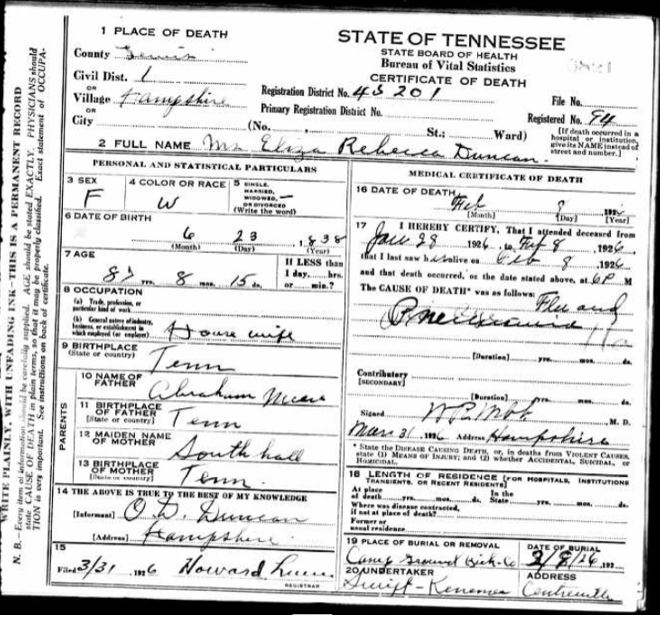 STATE OF TENNESSEE
STATE BOARD OF HEALTH
Bureau of Vital Statistics
CERTIFICATE OF DEATH
1 PLACE OF DEATH
County Lewis
Civil Dist. 1
OR
Village Hampshire
OR
City
(No. St.; Ward)
Registration District No. 43201
File No.
Primary Registration District No.
Registered No. 94
[If death occurred in a hospital or institution, give its NAME instead of street and number.]
2 FULL NAME Mrs Eliza Rebecca Duncan
PERSONAL AND STATISTICAL PARTICULARS
3 SEX
F
4 COLOR OR RACE
W
5 SINGLE,
MARRIED,
WIDOWED,
OR DIVORCED
(Write the word)
6 DATE OF BIRTH
6 23 1838
(Month) (Day) (Year)
7 AGE
87 yrs. 8 mos. 15 ds.
If LESS than
1 day,....hrs.
or....min.?
8 OCCUPATION
(a) Trade, profession, or
particular kind of work
(b) General nature of industry,
business, or establishment in
which employed (or employer)
House wife
9 BIRTHPLACE
(State or country)
Tenn
PARENTS
10 NAME OF
FATHER
Abraham
11 BIRTHPLACE
OF FATHER
(State or country)
Tenn
12 MAIDEN NAME
OF MOTHER
Southall
13 BIRTHPLACE
OF MOTHER
(State or country)
Tenn.
14 THE ABOVE IS TRUE TO THE BEST OF MY KNOWLEDGE
(Informant) O. D. Duncan
(Address) Hampshire
15
Filed 3/31 1926 Howard
REGISTRAR
MEDICAL CERTIFICATE OF DEATH
16 DATE OF DEATH
Feb 8 192
(Month) (Day) (Year)
17 I HEREBY CERTIFY, That I attended deceased from
Jan 28 1926, to Feb 8 1926
that I last saw h alive on Feb 8 1926
and that death occurred, on the date stated above, at 6P M
The CAUSE OF DEATH* was as follows:
Flu and
Pneumonia
(Duration) yrs. mos. ds.
Contributory
(SECONDARY)
(Duration) yrs. mos. ds.
Signed M. D.
Mar 31, 1926 Address Hampshire
* State the DISEASE CAUSING DEATH, or, in deaths from VIOLENT CAUSES,
state (1) MEANS OF INJURY; and (2) whether ACCIDENTAL, SUICIDAL, or
HOMICIDAL.
18 LENGTH OF RESIDENCE (FOR HOSPITALS, INSTITUTIONS
TRANSIENTS, OR RECENT RESIDENTS).
At place
of death yrs. mos. ds.
In the
State yrs. mos. ds.
Where was disease contracted,
if not at place of death?
Former or
usual residence
19 PLACE OF BURIAL OR REMOVAL
Camp Ground
DATE OF BURIAL
2/8/26 192
20 UNDERTAKER
Swift-
ADDRESS
Centreville
WRITE PLAINLY, WITH UNFADING INK—THIS IS A PERMANENT RECORD
N. B.—Every item of information should be carefully supplied. AGE should be stated EXACTLY. PHYSICIANS should
state CAUSE OF DEATH in plain terms, so that it may be properly classified. Exact statement of OCCUPA-
TION is very important. See instructions on back of certificate.